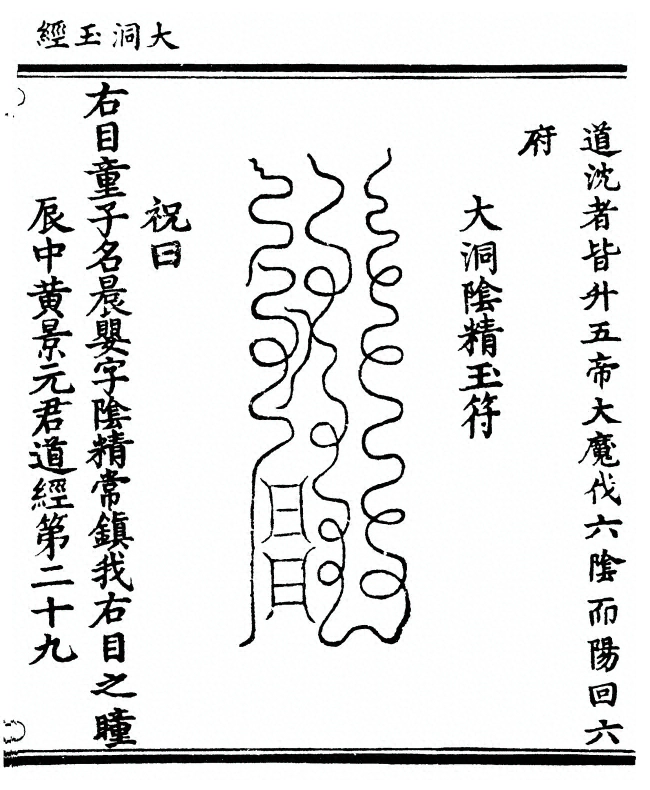 大洞玉經
道沈者皆升五帝大魔伐六陰而陽回六
府
大洞陰精玉符
祝曰
右目童子名晨嬰字陰精常鎮我右目之瞳
辰中黃景元君道經第二十九